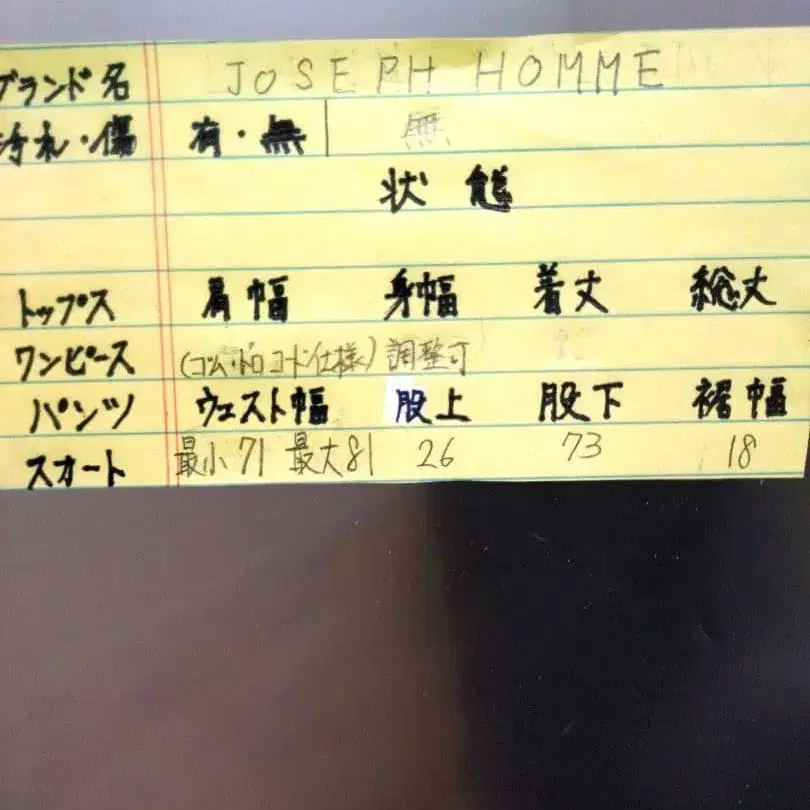 ブランド名 JOSEPH HOMME
汚れ・傷 有・無 無
状態
トップス 肩幅 身幅 着丈 総丈
ワンピース (ゴム・ドロコード仕様) 調整可
パンツ ウエスト幅 股上 股下 裾幅
スカート 最小71 最大81 26 73 18